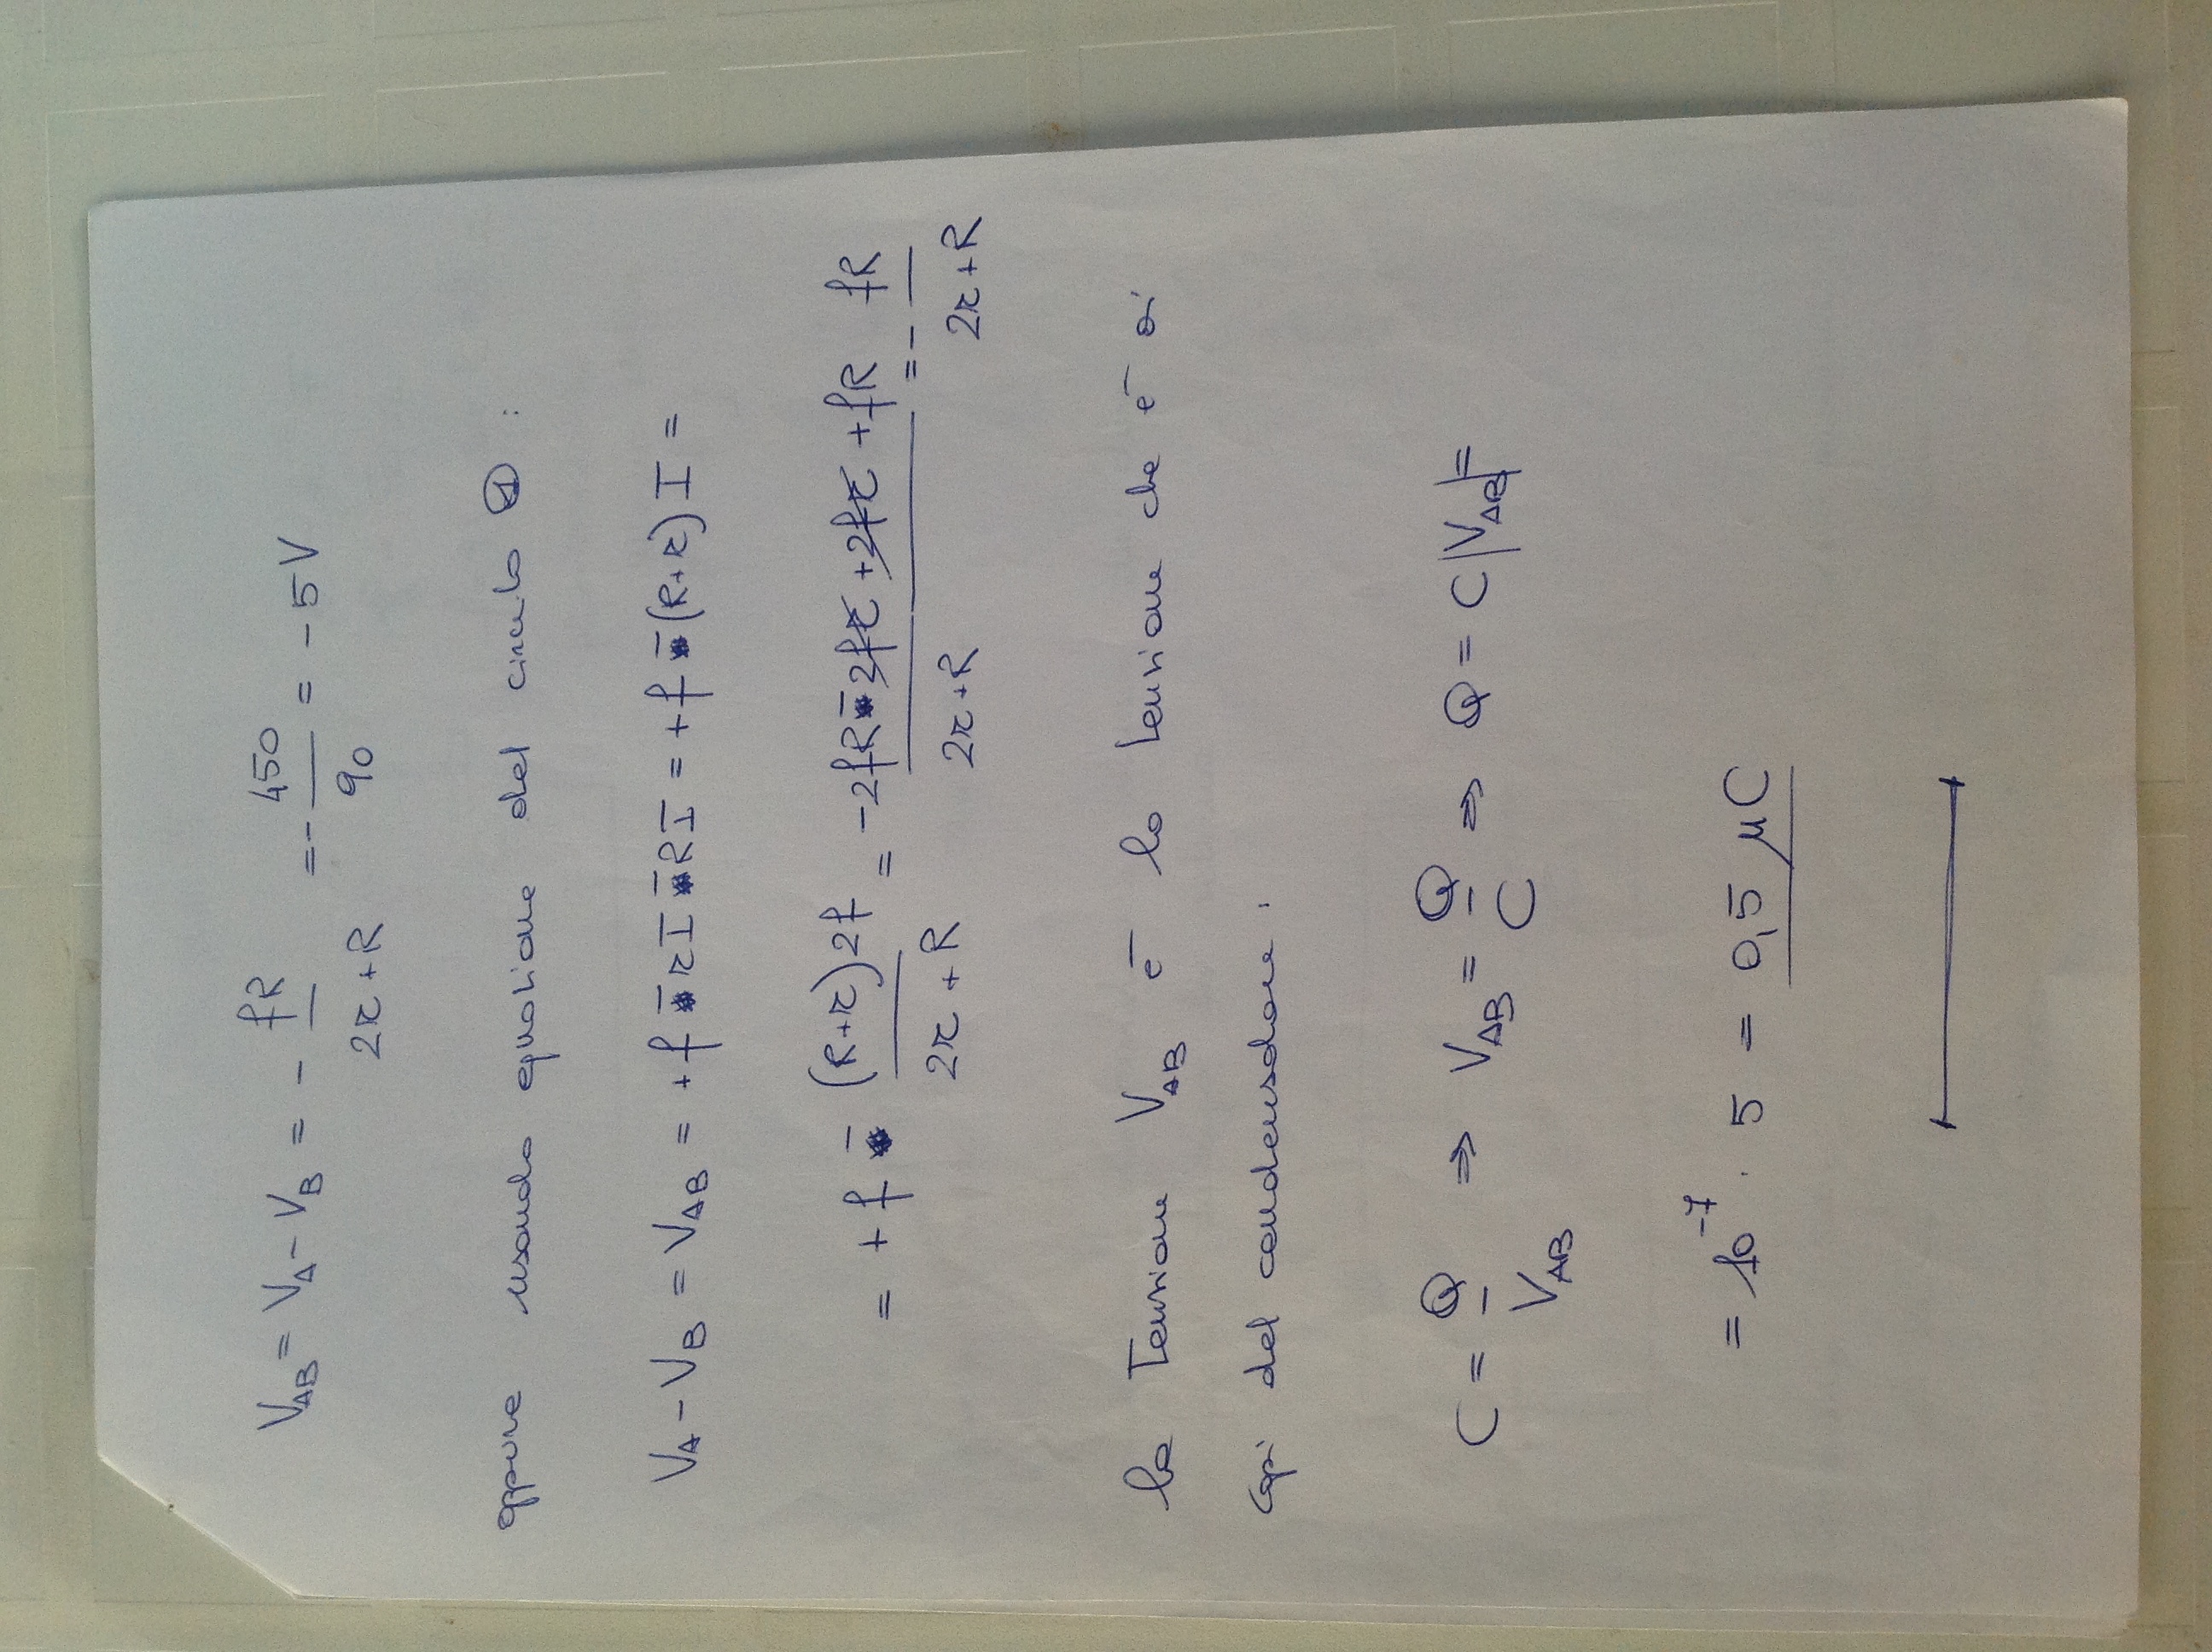 V_AB = V_A - V_B = - fR / (2r + R) = - 450 / 90 = - 5 V
oppure usando equazione del circuito ① :
V_A - V_B = V_AB = + f - rI - RI = + f - (R + r) I =
= + f - (R + r) 2f / (2r + R) = (-2fR - 2fr + 2fr + fR) / (2r + R) = - fR / (2r + R)
la tensione V_AB è la tensione che è ai
capi del condensatore :
C = Q / V_AB ⇒ V_AB = Q / C ⇒ Q = C |V_AB| =
= 10^-7 · 5 = 0,5 μC